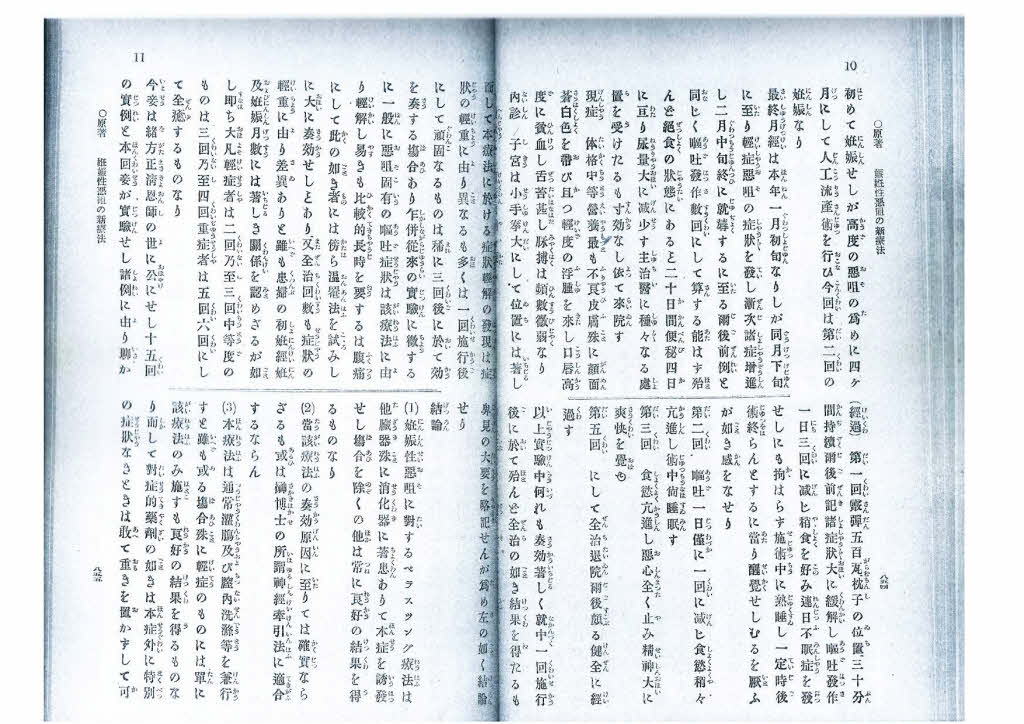 10
○原著　姙娠性惡阻の新療法
八四
初めて姙娠せしが高度の惡咀の爲めに四ヶ
月にして人工流産術を行ひ今回は第二回の
姙娠なり
最終月經は本年一月初旬なりしが同月下旬
に至り輕症惡咀の症狀を發し漸次諸症增進
し二月中旬終に就蓐するに至る爾後前例と
同じく嘔吐發作數回にして算する能はす殆
んと絕食の狀態にあると二十日間便秘四日
に亘り尿量大に減少す主治醫に種々なる處
置を受けたるも寸効なし依て來院す
現症　體格中等營養最も不良皮膚殊に顔面
蒼白色を帶び且つ輕度の浮腫を來し口唇高
度に貧血し舌苔甚し脉搏は頻數微弱なり
內診　子宮は小手拳大にして位置には著し
(經過)　第一回霰彈五百瓦枕子の位置三十分
間持續爾後前記諸症狀大に緩解し嘔吐發作
一日三回に減じ稍食を好み連日不眠症を發
せしにも拘はらす施術中に熟睡し一定時後
術終らんとするに當り醒覺せしむるを厭ふ
が如き感をなせり
第二回　嘔吐一日僅に一回に減じ食慾稍々
亢進し術中尙睡眠す
第三回　食慾亢進し惡心全く止み精神大に
爽快を覺ゆ
第五回　にして全治退院爾後頗る健全に經
過す
以上實驗中何れも奏効著しく就中一回施行
後に於て殆んど全治の如き結果を得たるも
11
○原著　姙娠性惡咀の新療法
八五
而して本療法に於ける症狀緩解の發現は症
狀の輕重に由り異なるも多くは一回施行後
にして頑固なるものは稀に三回後に於て効
を奏する塲合あり乍併從來の實驗に徵する
に一般に惡咀固有の嘔吐症狀は該療法に由
り輕解し易きも比較的長時を要するは腹痛
にして此の如き者には傍ら溫罨法を試みし
に大に奏効せしとあり又全治回數も症狀の
輕重に由り差異ありと雖も患婦の初姙經姙
及姙娠月數には著しき關係を認めざるが如
し即ち大凡輕症者は二回乃至三回中等度の
ものは三回乃至四回重症者は五回六回にし
て全癒するものなり
今妾は緖方正淸恩師の世に公にせし十五回
の實例と本回妾が實驗せし諸例に由り聊か
卑見の大要を略記せんが爲め左の如く結論
せり
結論
(1)姙娠性惡咀に對するベラスツング療法は
他臟器殊に消化器に著患ありて本症を誘發
せし塲合を除くの他は常に良好の結果を得
るものなり
(2)當該療法の奏効原因に至りては確實なら
ざるも或は榊博士の所謂神經牽引法に適合
するならん
(3)本療法は通常灌腸及び膣內洗滌等を兼行
すと雖も或る塲合殊に輕症のものには單に
該療法のみ施すも良好の結果を得るものな
り而して對症的藥劑の如きは本症外に特別
の症狀なきときは敢て重きを置かずして可